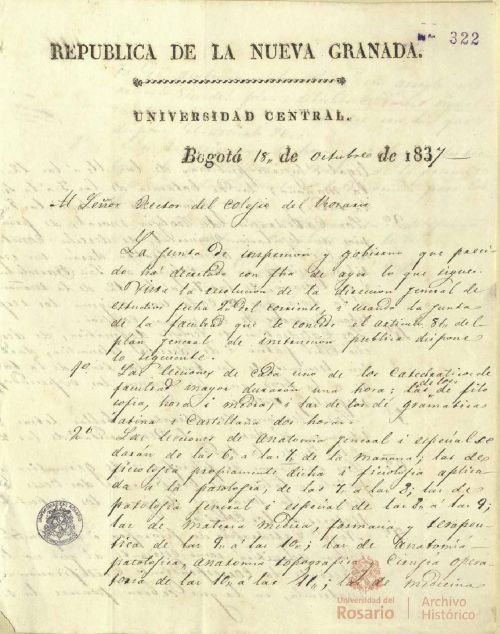 Nº 322
REPUBLICA DE LA NUEVA GRANADA.
UNIVERSIDAD CENTRAL.
Bogotá 18, de Octubre de 1837
Al Señor Rector del Colegio del Rosario
La junta de inspeccion y gobierno que presi-
do há decretado con fha de ayer lo que sigue.
Vista la resolucion de la direccion general de
estudios fecha 2 del corriente, i usando la junta
de la facultad que le concede el articulo 86 del
plan general de instruccion publica dispone
lo siguiente.
1º Las lecciones de cada uno de los Catedraticos de
facultad mayor durarán una hora: las de los de filo
sofia, hora i media; i las de los de gramaticas
latina i Castellana dos horas.
2º Las lecciones de anatomia general i especial se
daran de las 6, a las 7, de la mañana; las de
fisiologia propiamente dicha i fisiologia aplica
da á la patologia, de las 7, á las 8; las de
patologia general i especial de las 8, á las 9,
las de materia medica, farmacia y terapeu-
tica de las 9, á las 10,; las de anatomia
patologica, anatomia topografica i Cirugia opera
toria de las 10, á las 11,; las de medicina
Universidad del
Rosario
Archivo
Histórico